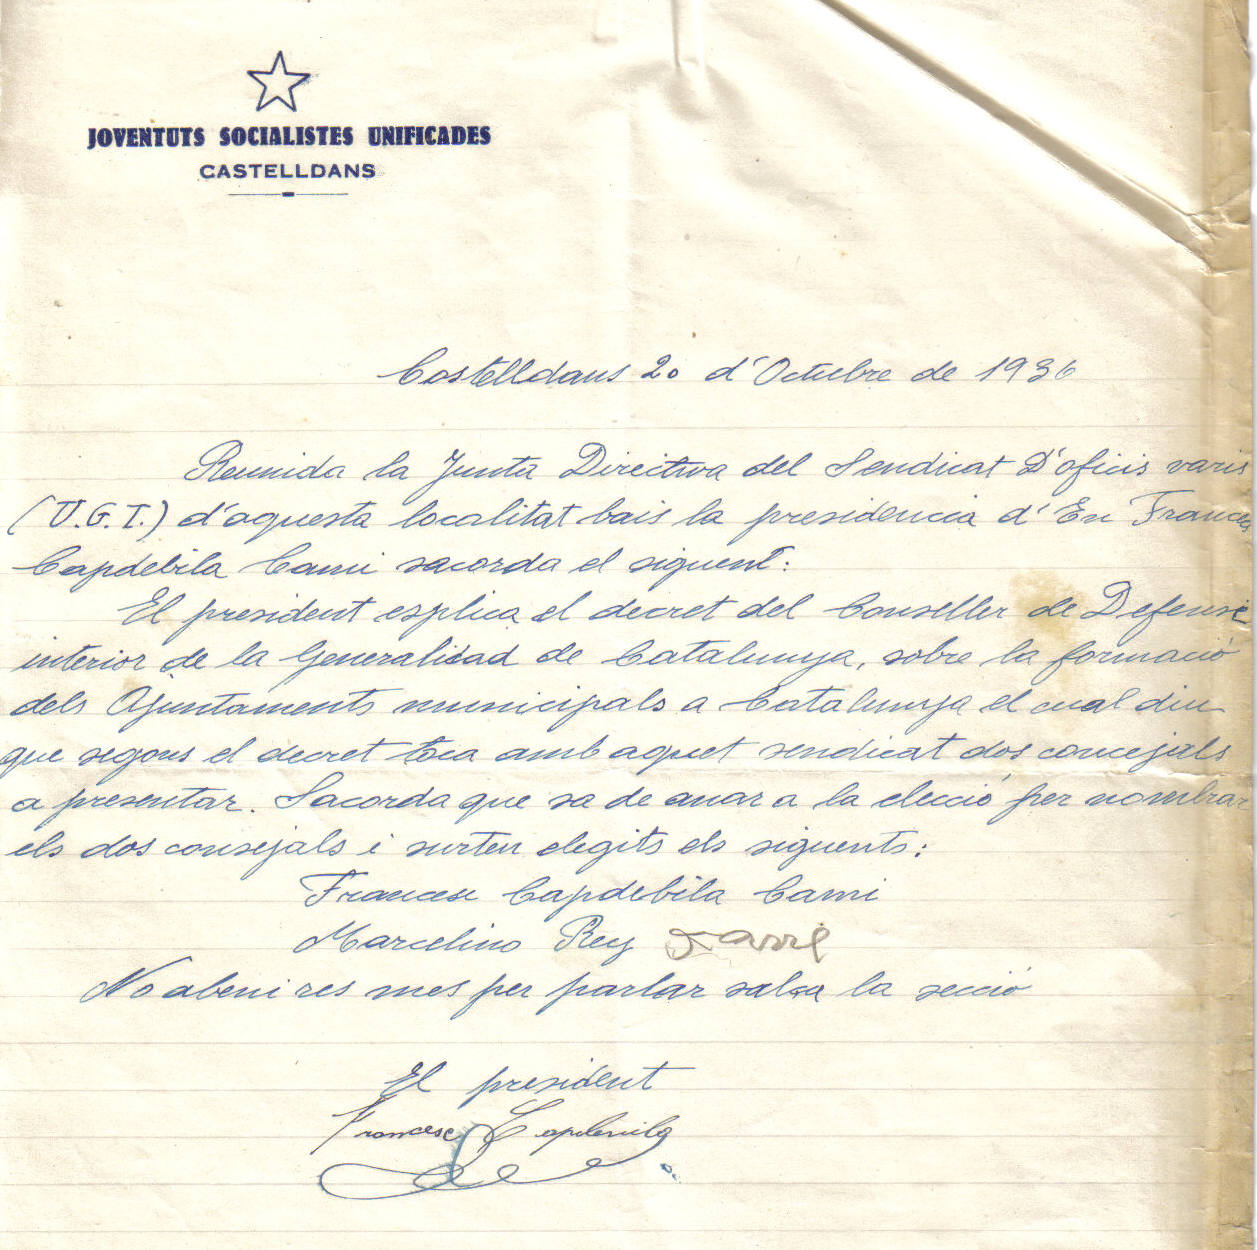 JOVENTUTS SOCIALISTES UNIFICADES
CASTELLDANS
Castelldans 20 d'Octubre de 1936
Reunida la Junta Directiva del Sendicat D'oficis varis
(U.G.T.) d'aquesta localitat bais la presidencia d'En Francesc
Capdebila Cami sacorda el siguent:
El president esplica el decret del Conseller de Defensa
interior de la Generalidad de Catalunya, sobre la formació
dels Ajuntaments municipals a Catalunya el cual diu
que segons el decret toca amb aquet sendicat dos concejals
a presentar. Sacorda que sa de anar a la elecció per nombrar
els dos consejals i surten elegits els siguents:
Francesc Capdebila Cami
Marcelino Rey Farré
No abeni res mes per parlar salsa la secció
El president
Francesc Capdevila